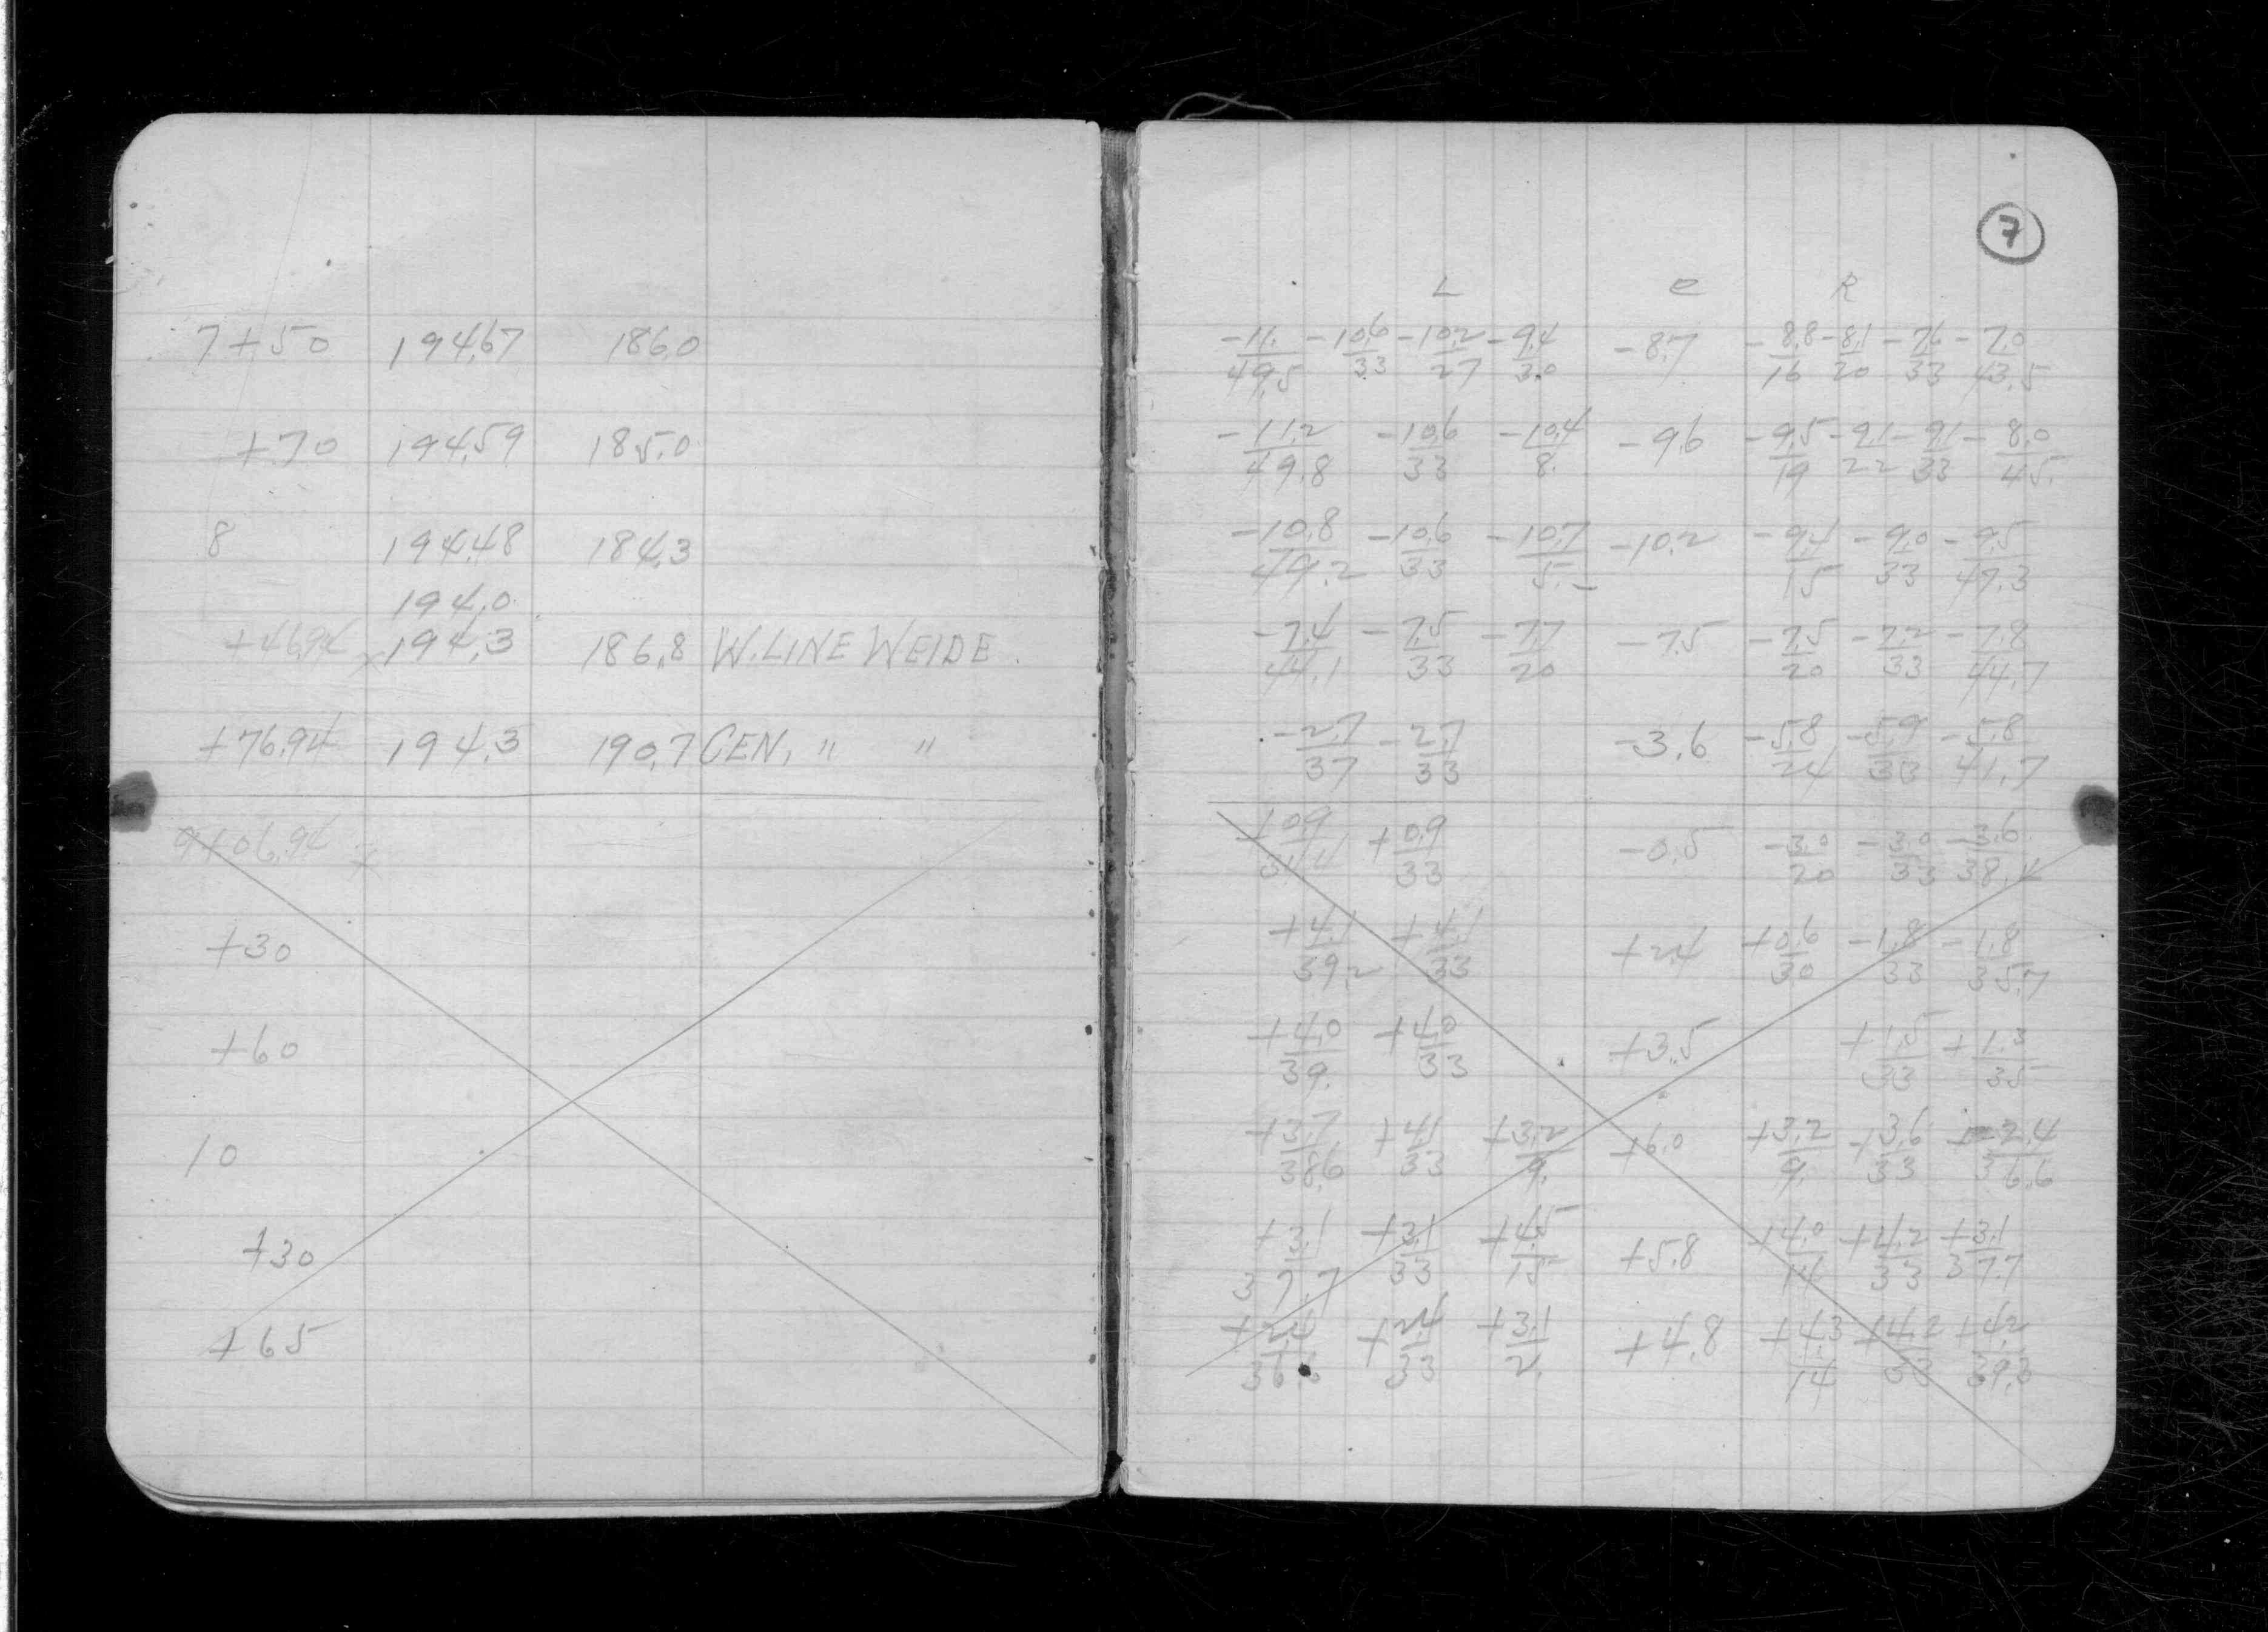 7+50 194.67 186.0
+70 194.59 185.0
8 194.48 184.3
194.0
+46.94 x 194.3 186.8 W. LINE WEIDE.
+76.94 194.3 190.7 CEN, " "
9+06.94 x
+30
+60
10
+30
+65
7
L C R
-11./49.5 -10.6/33 -10.2/27 -9.4/30 -8.7 -8.8/16 -8.1/20 -7.6/33 -7.0/43.5
-11.2/49.8 -10.6/33 -10.4/8. -9.6 -9.5/19 -9.1/22 -9.1/33 -8.0/45.
-10.8/49.2 -10.6/33 -10.7/5. -10.2 -9.4/15 -9.0/33 -9.5/47.3
-7.4/44.1 -7.5/33 -7.7/20 -7.5 -7.5/20 -7.2/33 -7.8/44.7
-2.7/37 -2.7/33 -3.6 -5.8/24 -5.9/33 -5.8/41.7
+0.9 +0.9/33 -0.5 -3.0/20 -3.0/33 -3.6/38.4
+4.1/39.2 +4.1/33 +2.4 +0.6/30 -1.8/33 -1.8/35.7
+4.0/39. +4.0/33 +3.5 +1.5/33 +1.3/35
+3.7/38.6 +4.1/33 +3.2/9. +6.0 +3.2/9. +3.6/33 2.4/36.6
+3.1/37.7 +3.1/33 +4.5/15 +5.8 +4.0/14 +4.2/33 +3.1/37.7
+2.4 +2.4/33 +3.1/2. +4.8 +4.3/14 +4.2/33 +4.2/39.3